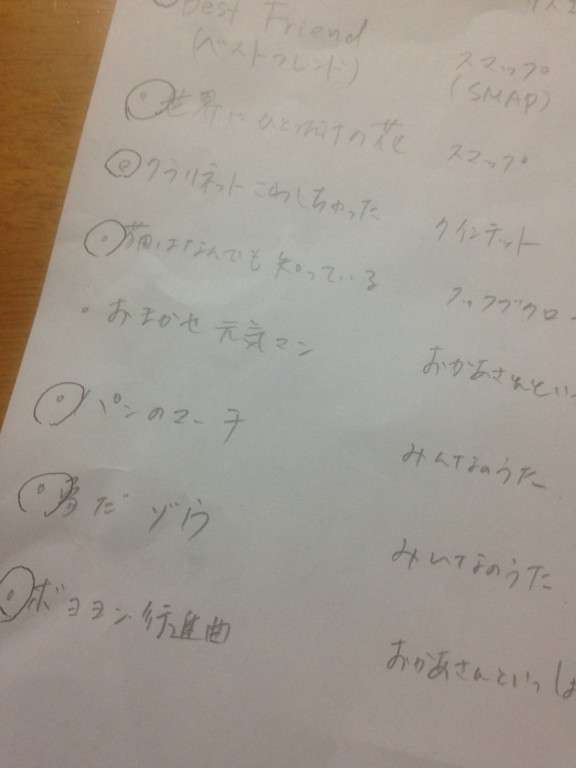 Best Friend
(ベストフレンド)
スマップ
(SMAP)
世界にひとつだけの花 スマップ
クラリネットこわしちゃった クインテット
猫はなんでも知っている
おまかせ元気マン おかあさんといっ
パンのマーチ みんなのうた
男だゾウ みんなのうた
ボヨヨン行進曲 おかあさんといっしょ